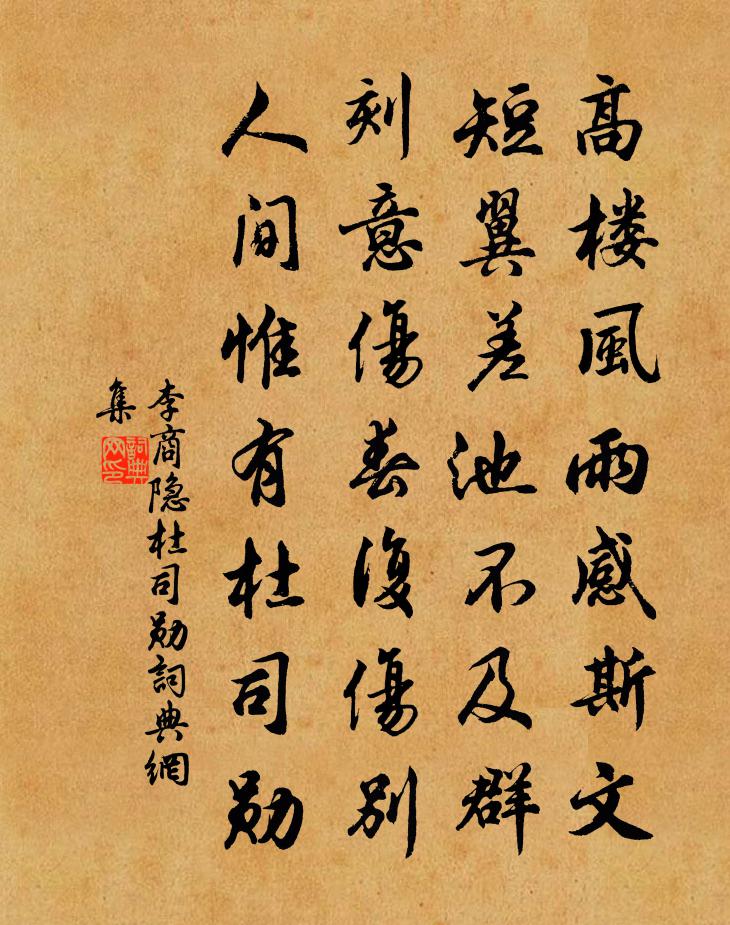 高楼風雨感斯文
短翼差池不及群
刻意傷春復傷別
人间惟有杜司勋
李商隐杜司勋詞典網
集
詞典
网印